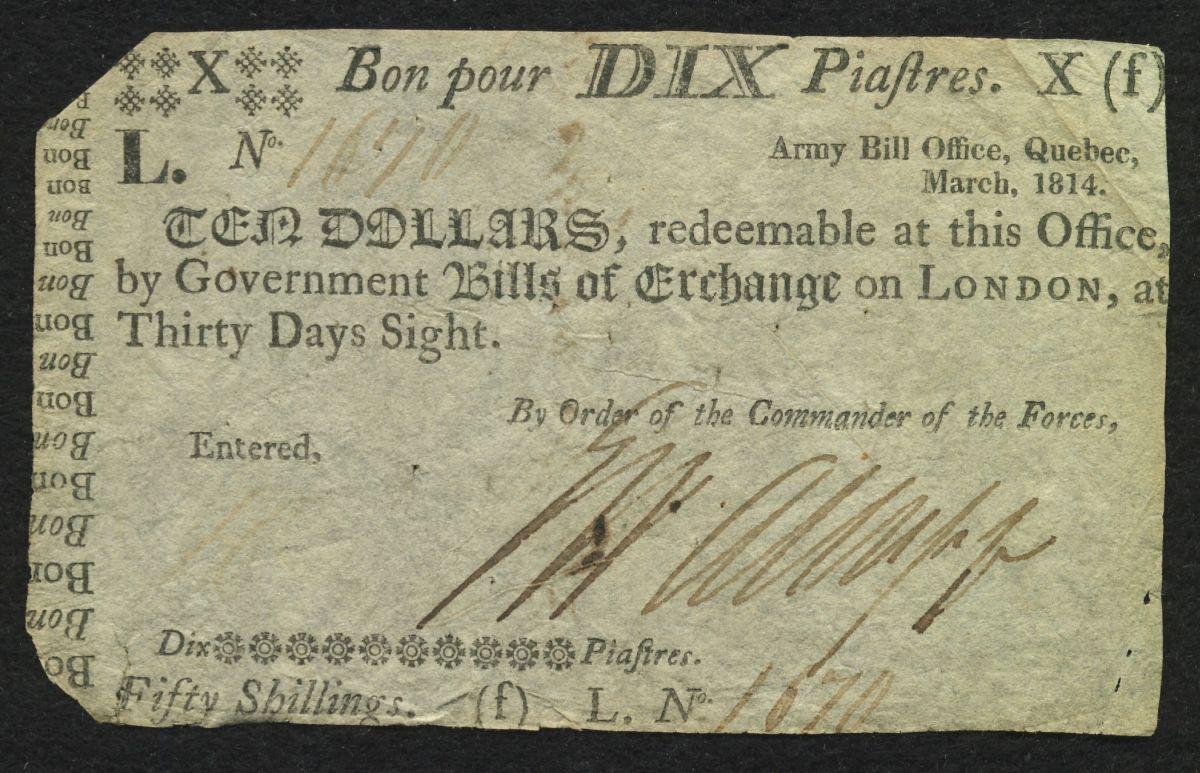 X Bon pour DIX Piaſtres. X (f)
L. No. 1670
Army Bill Office, Quebec,
March, 1814.
TEN DOLLARS, redeemable at this Office,
by Government Bills of Exchange on LONDON, at
Thirty Days Sight.
By Order of the Commander of the Forces,
Entered,
Dix Piaſtres.
Fifty Shillings. (f) L. No. 1670
B
Bon
Bon
Bon
Bon
Bon
Bon
Bon
Bon
Bon
Bon
Bon
Bon
Bon
Bon
Bo